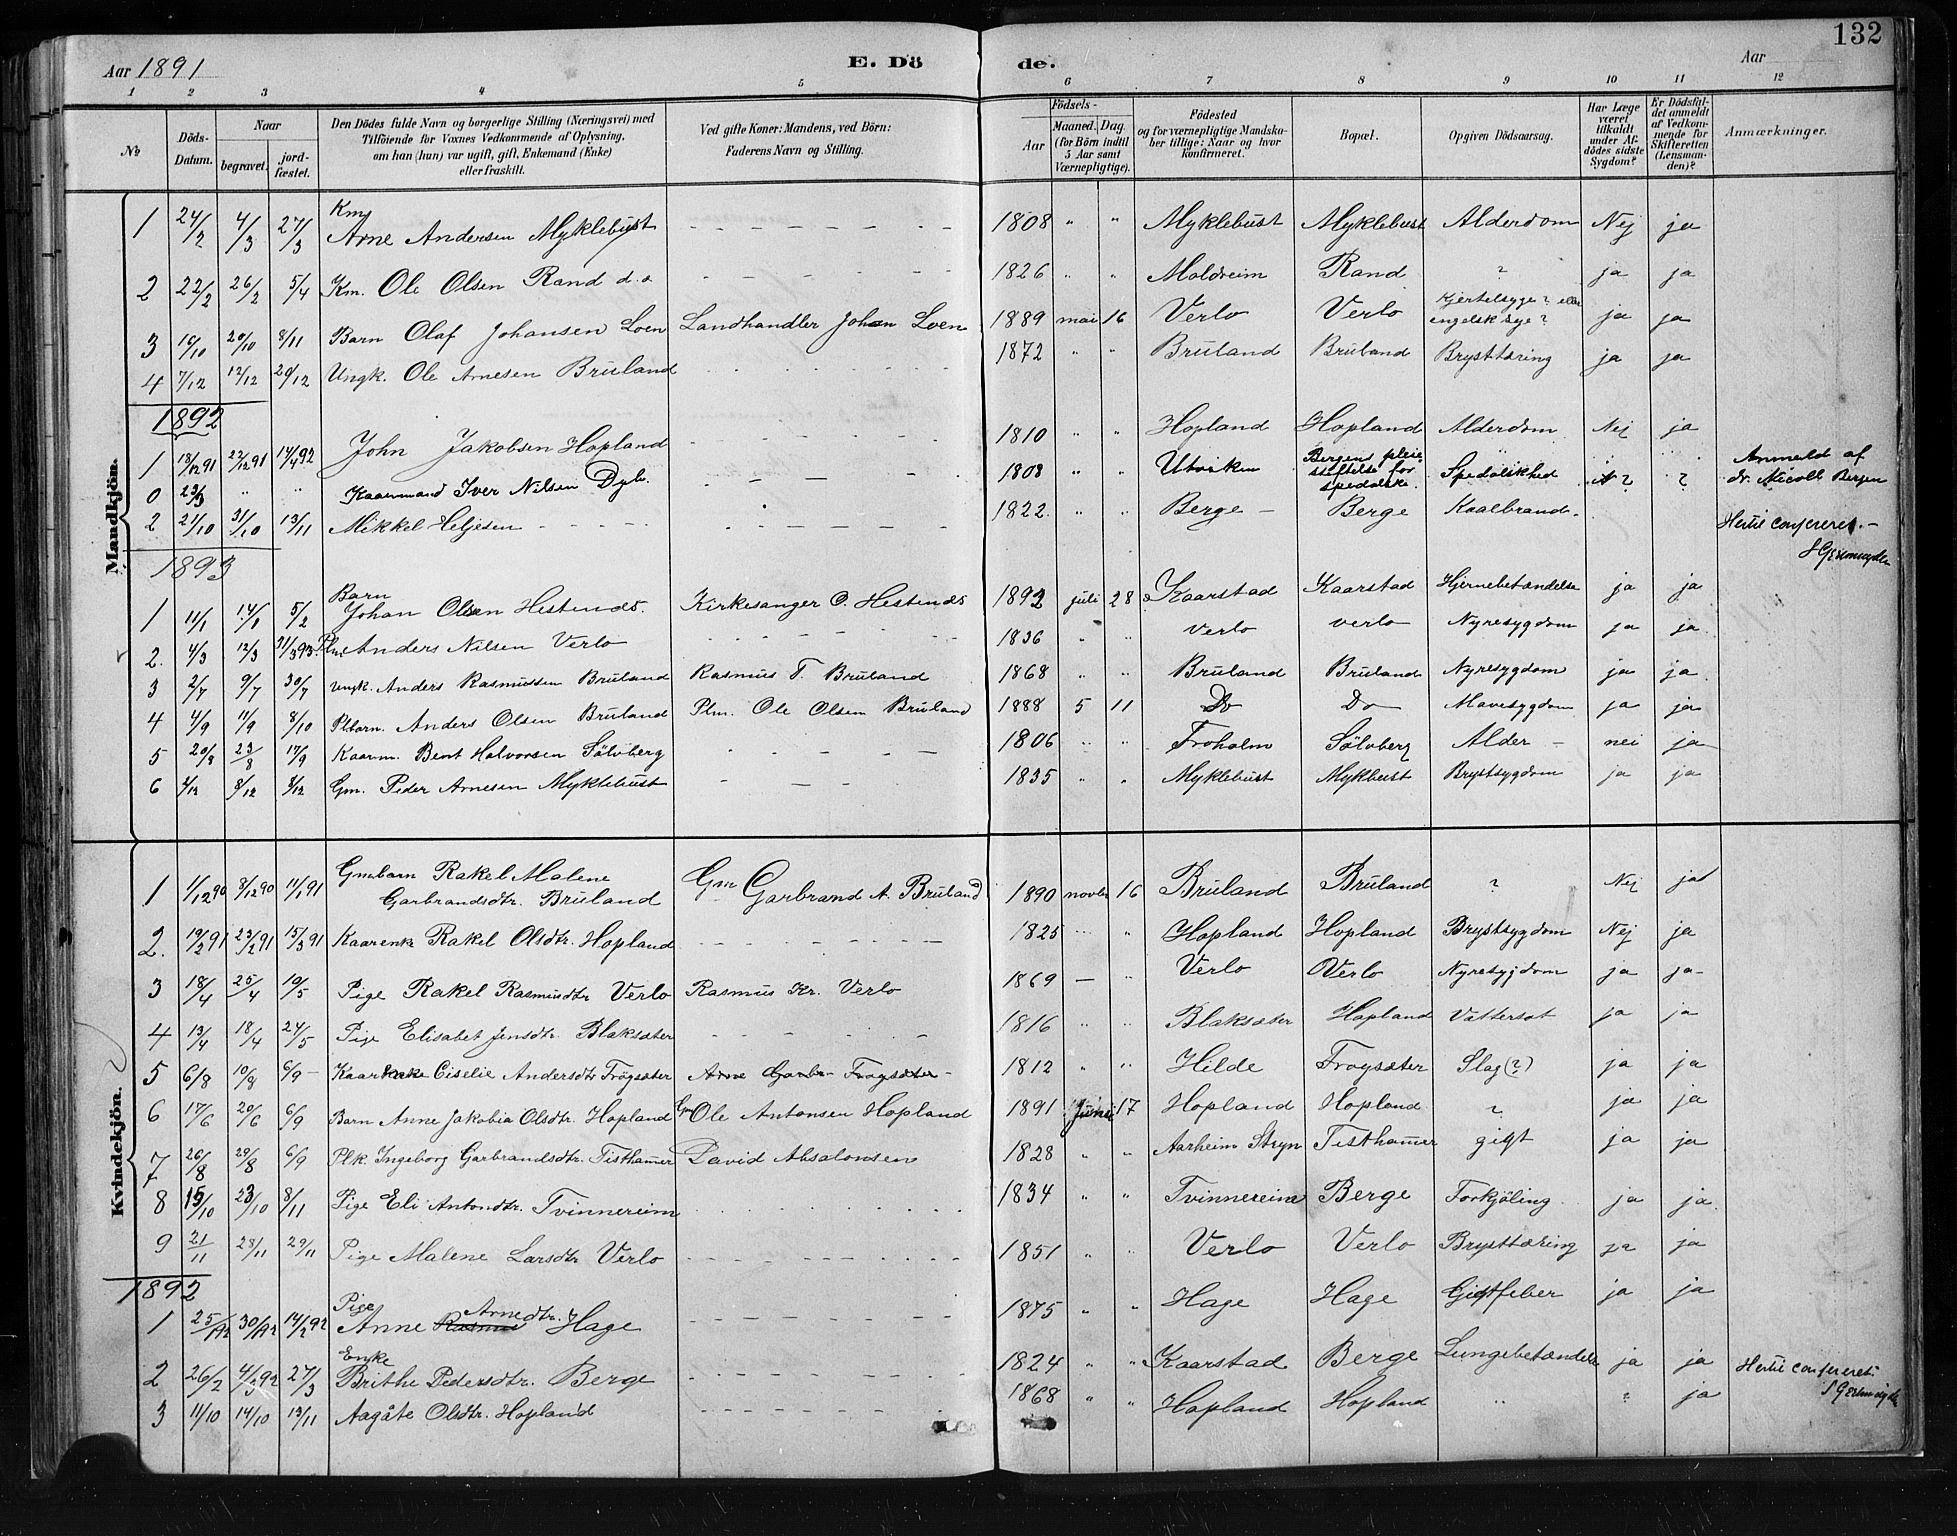 132
Aar 1891 E. Dö de. Aar
1 2 3 4 5 6 7 8 9 10 11 12
№ Döds-Datum. Naar begravet. jord-fæstet. Den Dödes fulde Navn og borgerlige Stilling (Næringsvei) med Tilföiende för Voxnes Vedkommende af Oplysning, om han (hun) var ugift, gift, Enkemand (Enke) eller fraskilt. Ved gifte Koner: Mandens, ved Börn: Faderens Navn og Stilling. Födsels- Aar Maaned. Dag. (for Börn indtil 5 Aar samt Værnepligtige). Födested og for værnepligtige Mandskaber tillige: Naar og hvor konfirmeret. Bopæl. Opgiven Dödsaarsag. Har Læge været tilkaldt under Afdödes sidste Sygdom? Er Dödsfaldet anmeldt af Vedkommende for Skifteretten (Lensmanden)? Anmærkninger.
Mandkjön.
1 24/2 4/3 27/3 Km Arne Andersen Myklebust 1808 " " Myklebust Myklebust Alderdom Nej ja
2 22/2 26/2 5/4 Km. Ole Olsen Rand d.o 1826 " " Moldreim Rand ? ja ja
3 16/10 20/10 8/11 Barn Olaf Johansen Loen Landhandler Johan Loen 1889 mai 16 Verlo Verlo Kjertelsyge? eller engelsk sye? ja ja
4 7/12 12/12 29/12 Ungk. Ole Arnesen Bruland 1872 " " Bruland Bruland Brysttæring ja ja
1892
1 18/12 91 22/12 91 14/4 92 John Jakobsen Hopland 1810 " " Hopland Hopland Alderdom Nej ja
0 23/3 " " Kaarmand Iver Nilsen Dyb. 1808 " " Utviken Bergens pleiestiftelse for spedalske. Spedalskhed N? ? Anmeld af dr. Nicoll Bergen
2 21/10 31/10 13/11 Mikkel Heljesen 1822. " " Berge Berge Kaalbrand. Hertil confereret.
1893
1 11/1 14/1 5/2 Barn Johan Olsen Hestenes. Kirkesanger O. Hestenes 1892 juli 28 Kaarstad Kaarstad Hjernebetændelse ja ja
2. 4/3 12/3 31/3 93. Plm. Anders Nilsen Verlo 1836 " " Verlo verlo Nyresygdom ja ja
3 2/7 9/7 30/7 ungk. Anders Rasmussen Bruland Rasmus T. Bruland 1868 " " Bruland Bruland Nyresygdom ja ja
4 4/9 11/9 8/10 Plbarn. Anders Olsen Bruland Plm. Ole Olsen Bruland 1888 5 11 Do Do Mavesygdom ja ja
5 20/8 23/8 17/9 Kaarm. Bent Halvorsen Sölvberg 1806 " " Froholm Sölvberg Alder nei ja
6 4/12 8/12 8/12 Gm. Peder Arnesen Myklebust 1835 " " Myklebust Myklbust Brystsygdom ja ja
Kvindekjön.
1 1/12 90 8/12 90 11/1 91 Gmbarn Rakel Malene Garbrandsdtr. Bruland Gm Garbrand A. Bruland 1890 novbr 16 Bruland Bruland ? Nej ja
2. 19/2 91 23/2 91 15/3 91 Kaarenk Rakel Olsdtr. Hopland 1825 " " Hopland Hopland Brystsygdom Nej ja
3 18/4 25/4 10/5 Pige Rakel Rasmusdtr Verlo Rasmus Kr. Verlo 1869 — " Verlo Verlo Nyresygdom ja ja
4 13/4 18/4 24/5 Pige Elisabet Jensdtr. Blaksæter 1816 " " Blaksæter Hopland Vattersot ja ja
5 6/8 10/8 6/9 Kaarenke Ciselie Andersdtr Frögsæter Arne Garbr Frogsæter 1812 " " Hilde Frogsæter Slag (?) ja ja
6 17/6 20/6 6/9 Barn Anne Jakobia Olsdtr. Hopland Gm Ole Antonsen Hopland 1891 Juni 17 Hopland Hopland ? ja ja
7 26/8 29/8 6/9 Plk. Ingeborg Garbrandsdtr. Tisthamer David Absalonsen 1828 " " Aarheim Stryn Tisthamer gigt ja ja
8 15/10 23/10 8/11 Pige Eli Antondtr. Tvinnereim 1834 " " Tvinnereim Berge Forkjöling. ja ja
9 21/11 28/11 29/11 Pige Malene Larsdtr Verlo 1851 " " Verlo Verlo Brysttæring ja ja
1892
1 25/1 92 30/1 92 14/2 92 Pige Anne Rasmus Arnedtr. Hage 1875 " " Hage Hage Gigtfeber ja ja
2 26/2 4/3 92 27/3 Enke Brithe Pedersdtr. Berge 1824 " " Kaarstad Berge Lungebetændelse ja ja Hertil confereret.
3 11/10 14/10 13/11 Aagåte Olsdtr. Hopland 1868 " " Hopland Hopland " ? ja